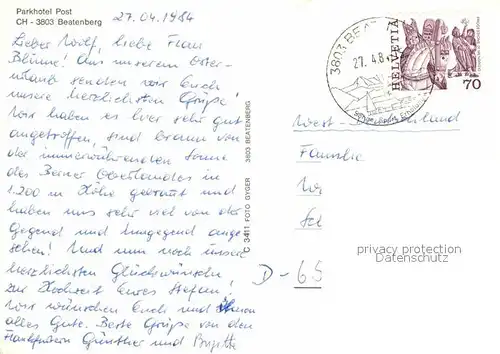 Parkhotel Post
CH - 3803 Beatenberg
27.04.1984
Lieber Wolf, liebe Frau
Blüme! Aus unserem Oster-
urlaub senden wir Euch
unsere herzlichsten Grüße!
Wir haben es hier sehr gut
angetroffen, sind braun von
der immerwährenden Sonne
des Berner Oberlandes in
1.200 m Höhe gebrannt und
haben uns sehr viel von der
Gegend und Umgegend ange-
sehen! Und nun noch unsere
herzlichsten Glückwünsche
zur Hochzeit Eures Stefan!
Wir wünschen Euch und Ihnen
alles Gute. Beste Grüße von den
Frankfurtern Günther und Brigitte
C 3411 FOTO GYGER 3803 BEATENBERG
3803 BEATENBERG
27. 4.8
HELVETIA
70
West land
Familie
D-65
privacy protection
Datenschutz